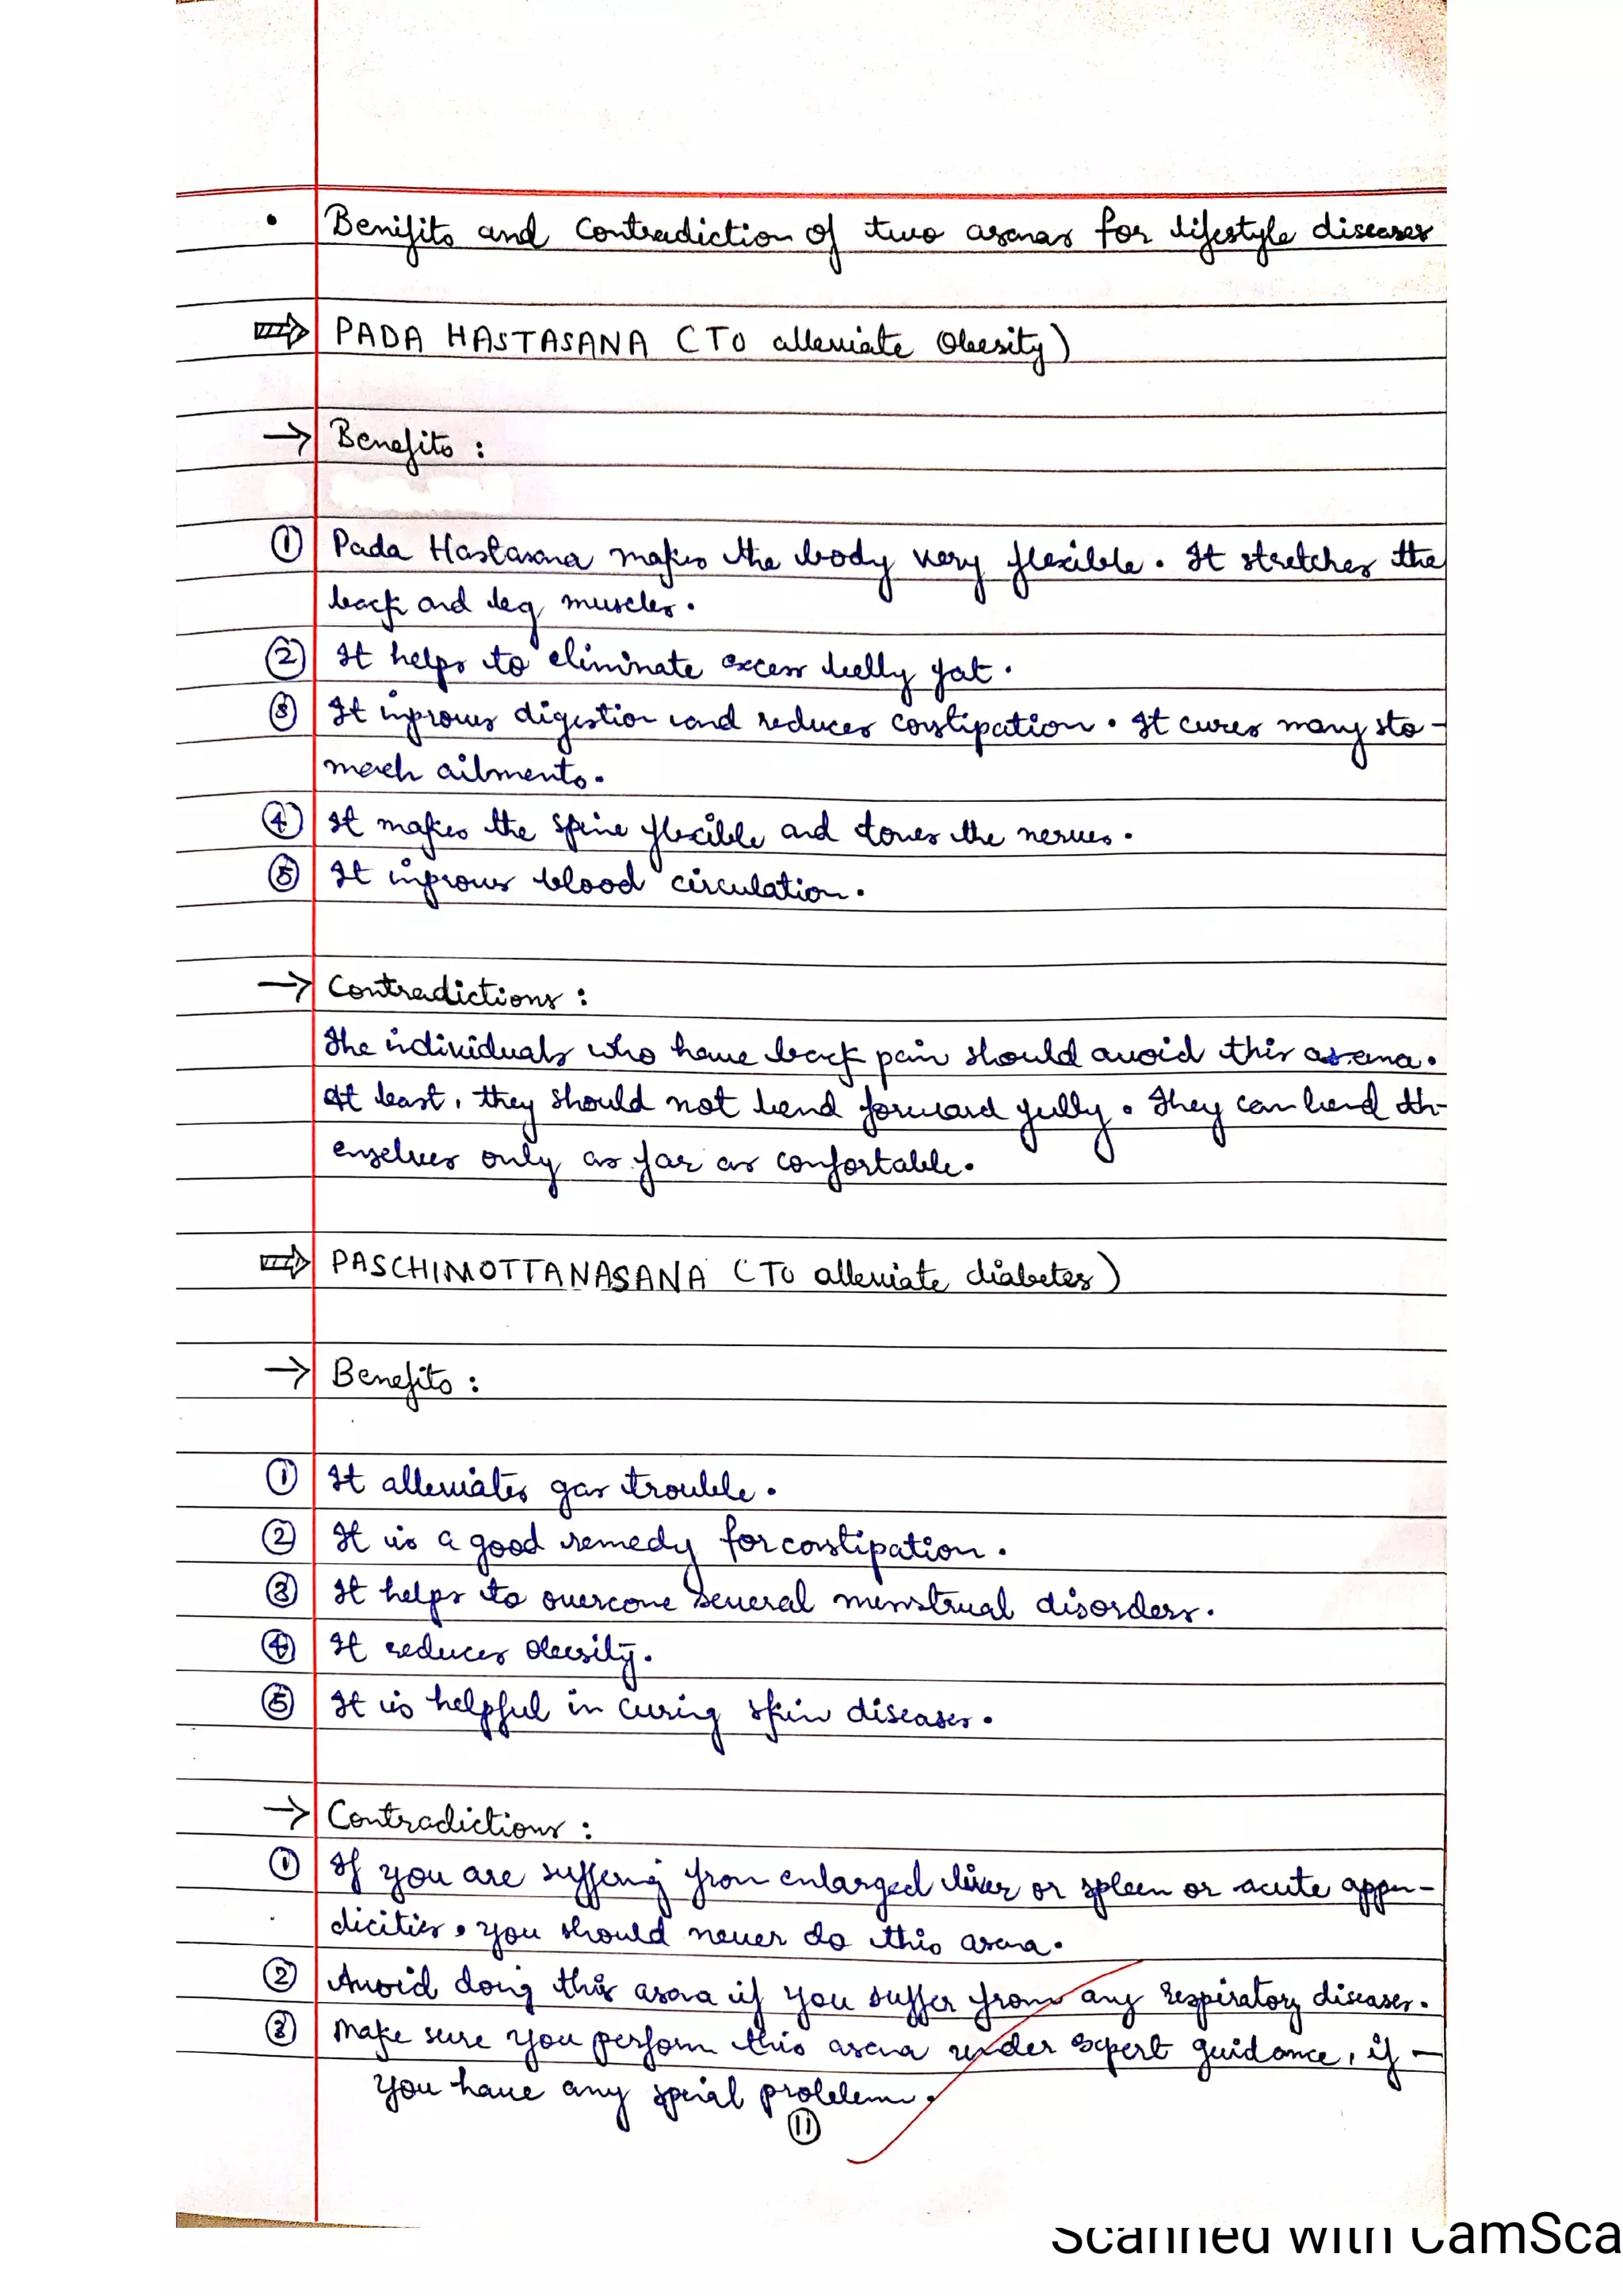 • Benifits and Contradiction of two asanas for lifestyle diseases
⇒ PADA HASTASANA (To alleviate Obesity)
→ Benefits :
① Pada Hastasana makes the body very flexible. It stretches the
back and leg muscles.
② It helps to eliminate excess belly fat.
③ It improves digestion and reduces constipation. It cures many sto-
mach ailments.
④ It makes the spine flexible and tones the nerves.
⑤ It improves blood circulation.
→ Contradictions :
The individuals who have back pain should avoid this asana.
At least, they should not bend forward fully. They can bend th-
emselves only as far as comfortable.
⇒ PASCHIMOTTANASANA (To alleviate diabetes)
→ Benefits :
① It alleviates gas trouble.
② It is a good remedy for constipation.
③ It helps to overcome several menstrual disorders.
④ It reduces obesity.
⑤ It is helpful in curing skin diseases.
→ Contradictions :
① If you are suffering from enlarged liver or spleen or acute appen-
dicitis, you should never do this asana.
② Avoid doing this asana if you suffer from any respiratory diseases.
③ Make sure you perform this asana under expert guidance, if -
you have any spinal problem.
⑪
Scanned with CamSca